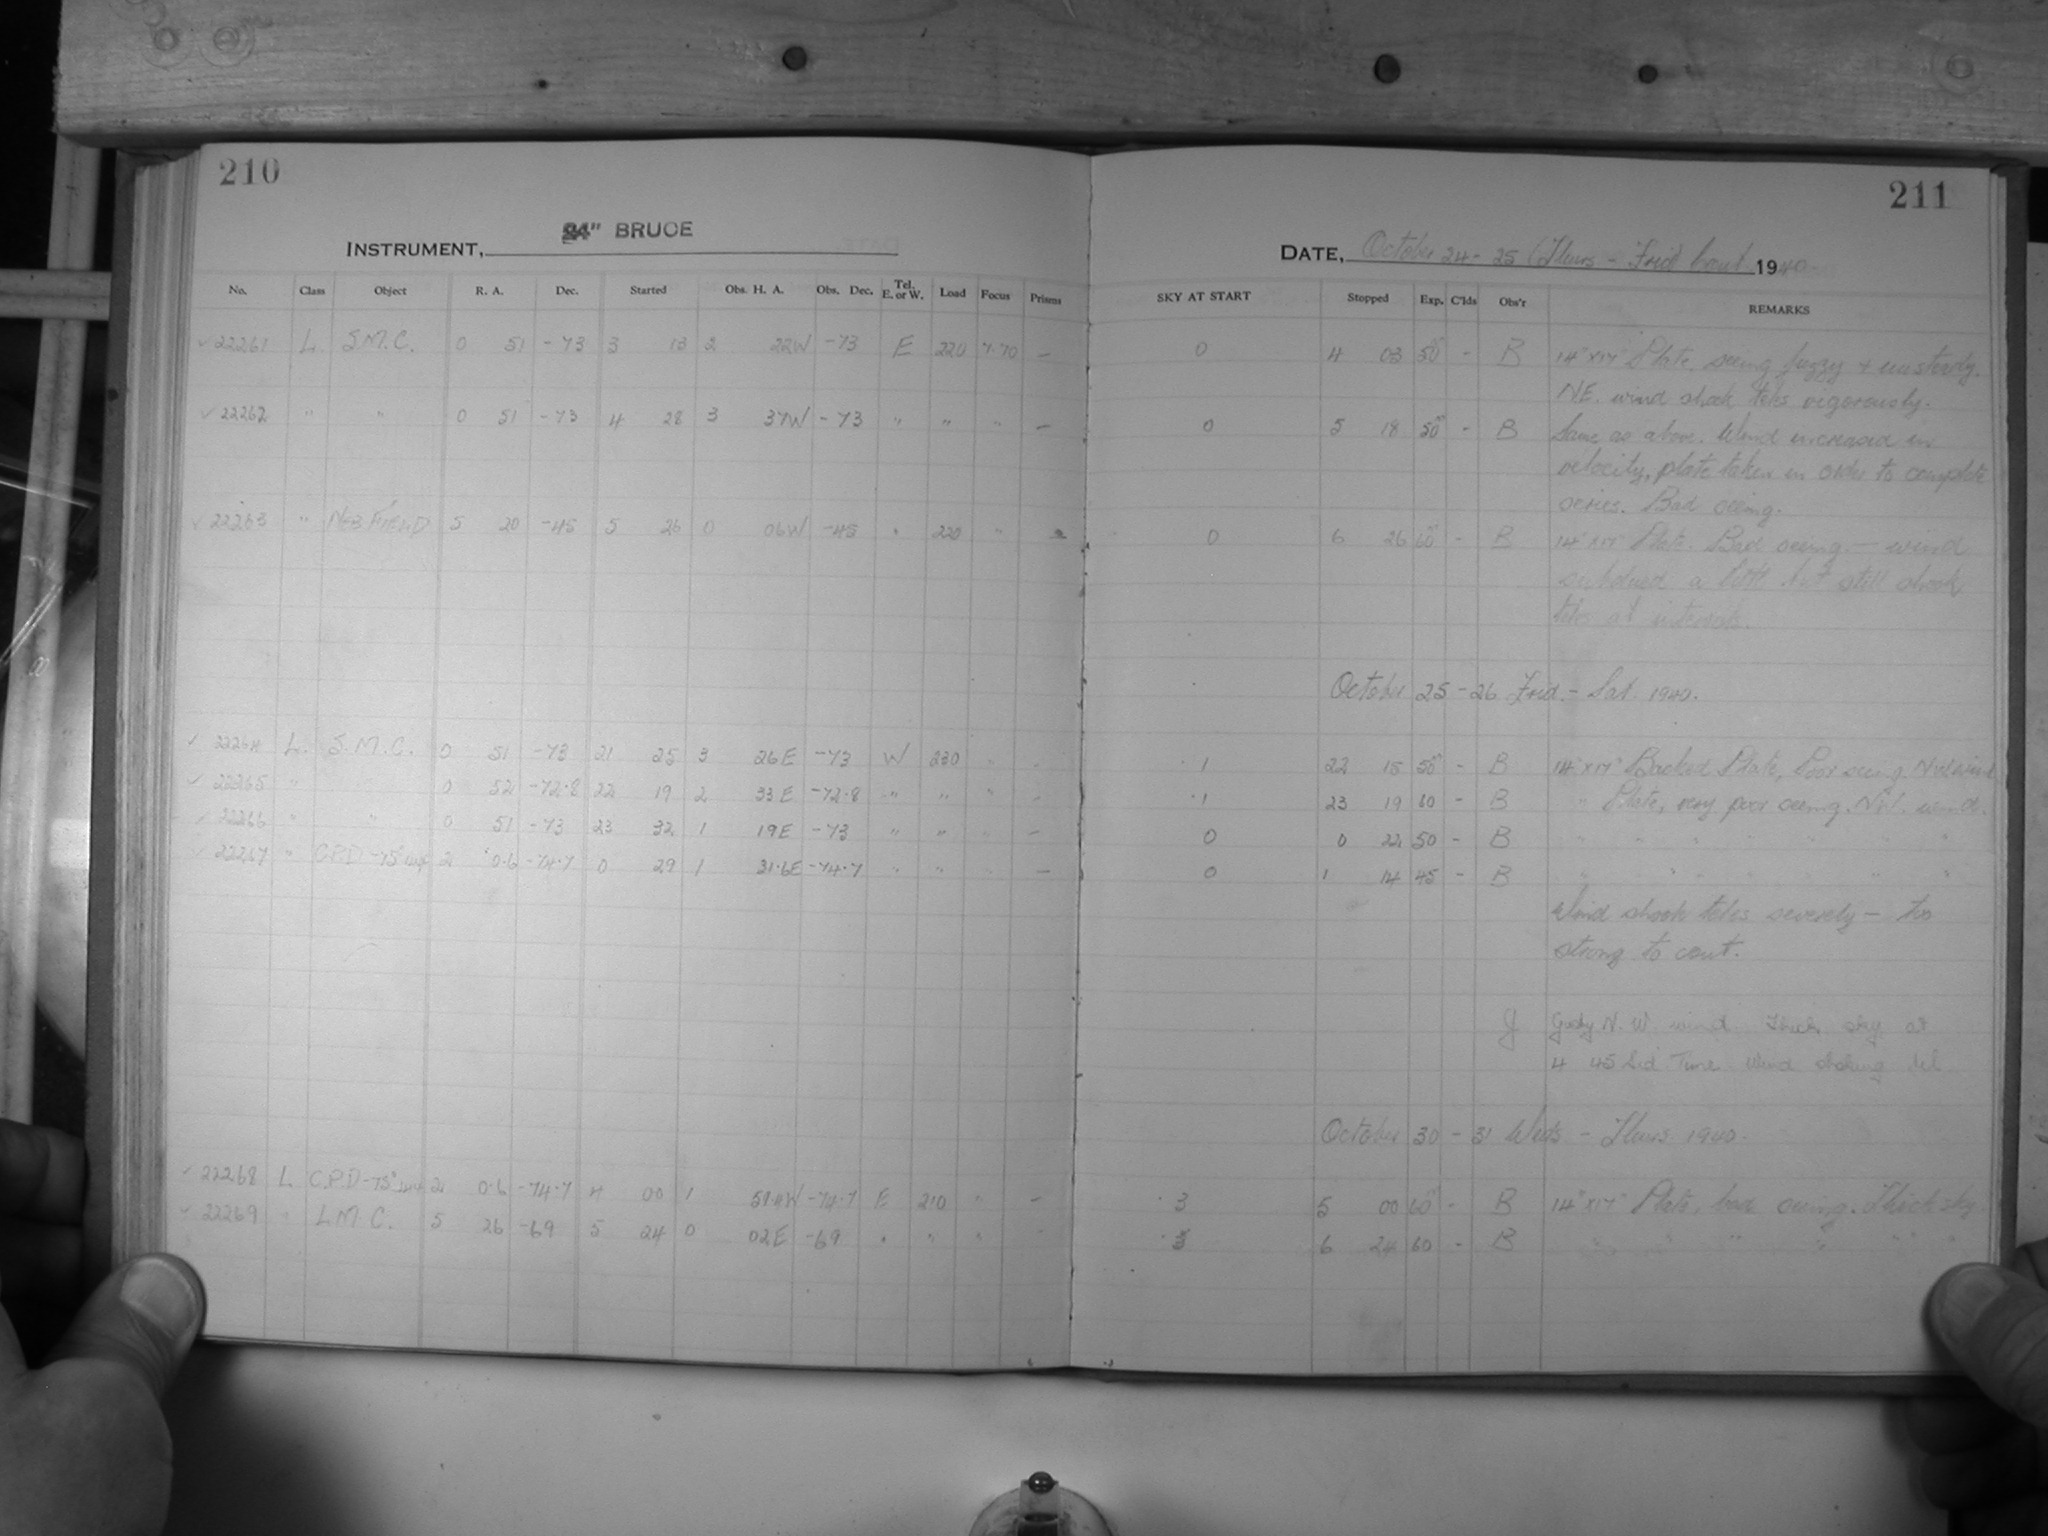 210
211
24" BRUCE
INSTRUMENT,
DATE, October 24-25 (Thurs - Frid) cont 1940
No. Class Object R. A. Dec. Started Obs. H. A. Obs. Dec. Tel. E. or W. Load Focus Prisms SKY AT START Stopped Exp. C'lds Obs'r REMARKS
✓ 22261 L. S.M.C. 0 51 -73 3 13 2 22W -73 E 220 7.70 - 0 4 03 50 - B 14"x17" Plate. seeing fuzzy + unsteady.
NE. wind shook teles vigorously.
✓ 22262 " " 0 51 -73 4 28 3 37W -73 " " " - 0 5 18 50 - B Same as above. Wind increased in
velocity, plate taken in order to complete
series. Bad seeing.
✓ 22263 " NEB FIELD 5 20 -45 5 26 0 06W -45 " 220 " 0 6 26 60 - B 14"x17" Plate. Bad seeing - wind
subdued a little but still shook
teles at intervals.
October 25-26 Frid. - Sat. 1940.
✓ 22264 L. S.M.C. 0 51 -73 21 25 3 26E -73 W 230 " - 1 22 15 50 - B 14"x17" Backed Plate, Poor seeing NW wind
✓ 22265 " " 0 52 -72.8 22 19 2 33E -72.8 " " " - 1 23 19 60 - B " Plate, very poor seeing. NW. wind.
✓ 22266 " " 0 51 -73 23 32 1 19E -73 " " " - 0 0 22 50 - B " " " " " " "
✓ 22267 " C.P.D -75° 2 0.6 -74.7 0 29 1 31.6E -74.7 " " " - 0 1 14 45 - B " " " " " "
Wind shook teles severely - too
strong to cont.
J Gusty N. W wind Thick sky at
4 45 Sid Time Wind shaking tel
October 30 - 31 Weds - Thurs 1940.
✓ 22268 L C.P.D -75° 2 0.6 -74.7 4 00 1 -74.7 E 210 " - 3 5 00 60 - B 14"x17" Plate, bad seeing. Thick sky
✓ 22269 " L.M.C. 5 26 -69 5 24 0 02E -69 " " " 3 6 24 60 - B " " " " " "